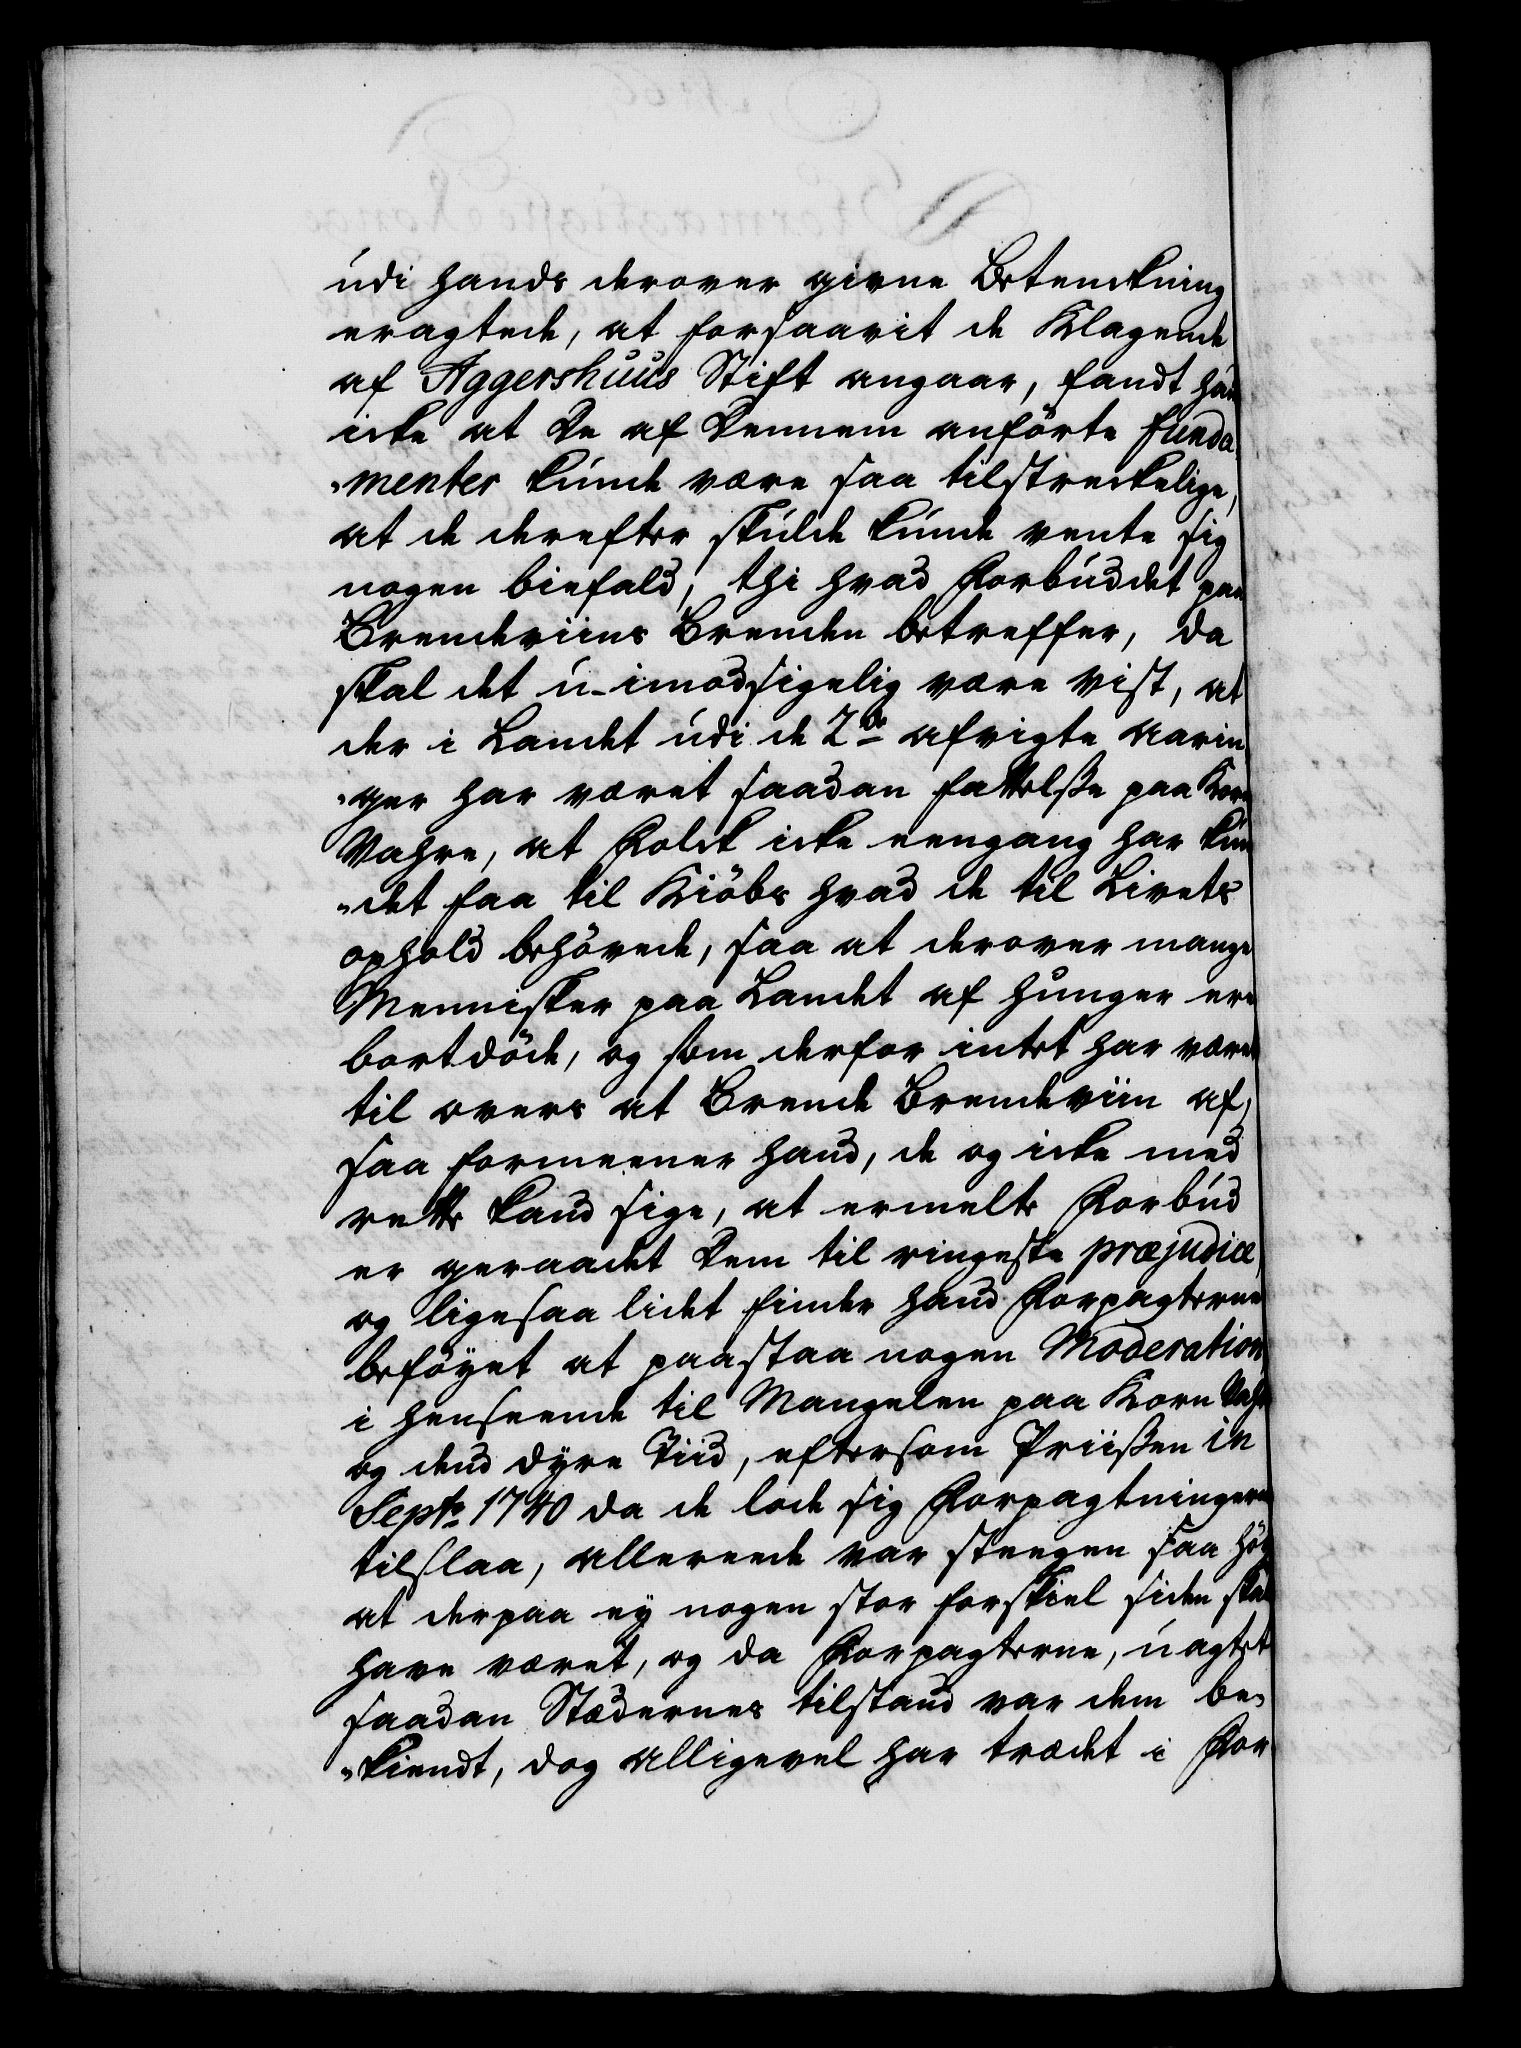 udi hands derover givne Betenckning
eragtede, at forsaavit de Klagende
af Aggershuus Stift angaar, fandt hand
icke at De af Dennem anförte funda
-menter kunde være saa tilstreckelige,
at de derefter skulde kunde vente sig
nogen biefald, thi hvad Forbuddet paa
Brendeviins Brenden betreffer, da
skal det u-imodsigelig være vist, at
der i Landet udi de 2de afvigte Aarin
-ger har været saadan fattelsse paa Korn
Vahre, at Folck icke eengang har kun
-det faa til Kiöbs hvad de til Livets
ophold behövede, saa at derover mange
Mennisker paa Landet af hunger ere
bortdöde, og som derfor intet har været
til overs at Brende Brendeviin af,
saa formeener hand, de og icke med
rette kand sige, at ermelte Forbud
er geraadet Dem til ringeste præjudice,
og ligesaa lidet finder hand Forpagterne
beföyet at paastaa nogen Moderation
i henseende til Mangelen paa Korn Vahre
og dend dyre Tiid, eftersom Priissen in
Septr 1740 da de lode sig Forpagtningerne
tilslaa, allereede var steegen saa höy
at derpaa ey nogen stor forskiel siden skal
have været, og da Forpagterne, uagtet
saadan Stædernes tilstand var dem be-
-kiendt, dog alligevel har trædt i For